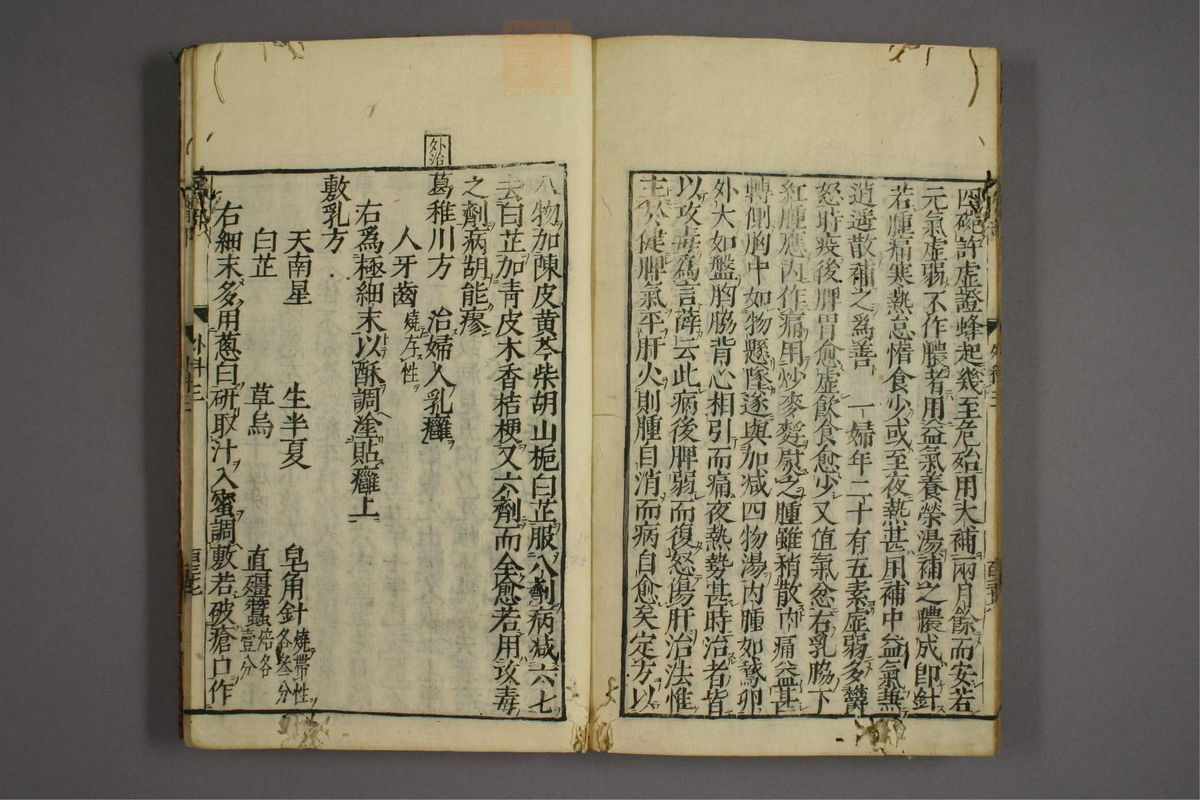 四碗許虛證蜂起幾至危殆用大補兩月餘而安若
元氣虛弱不作膿者用益氣養榮湯補之膿成卽針
若腫痛寒熱怠惰食少或至夜熱甚用補中益氣兼
逍遙散補之爲善 一婦年二十有五素虛弱多鬱
怒時疫後脾胃愈虛飲食愈少又值氣忿右乳脇下
紅腫應內作痛用炒麥麩熨之腫雖稍散內痛益甚
轉側胸中如物懸墜遂與加減四物湯內腫如鵞卵
外大如盤胸脇背心相引而痛夜熱勢甚時治者皆
以攻毒爲言薛云此病後脾弱而復怒傷肝治法惟
主於健脾氣平肝火則腫自消而病自愈矣定方以
八物加陳皮黃芩柴胡山梔白芷服八劑病減六七
去白芷加靑皮木香桔梗又六劑而全愈若用攻毒
之劑病胡能瘳
外治
葛稚川方 治婦人乳癰
人牙齒 燒存性
右爲極細末以酥調塗貼癰上
敷乳方
天南星 生半夏 皂角針 燒帶性各叁分
白芷 草烏 直殭蠶 焙各壹分
右細末多用蔥白硏取汁入蜜調敷若破瘡口作
外科三